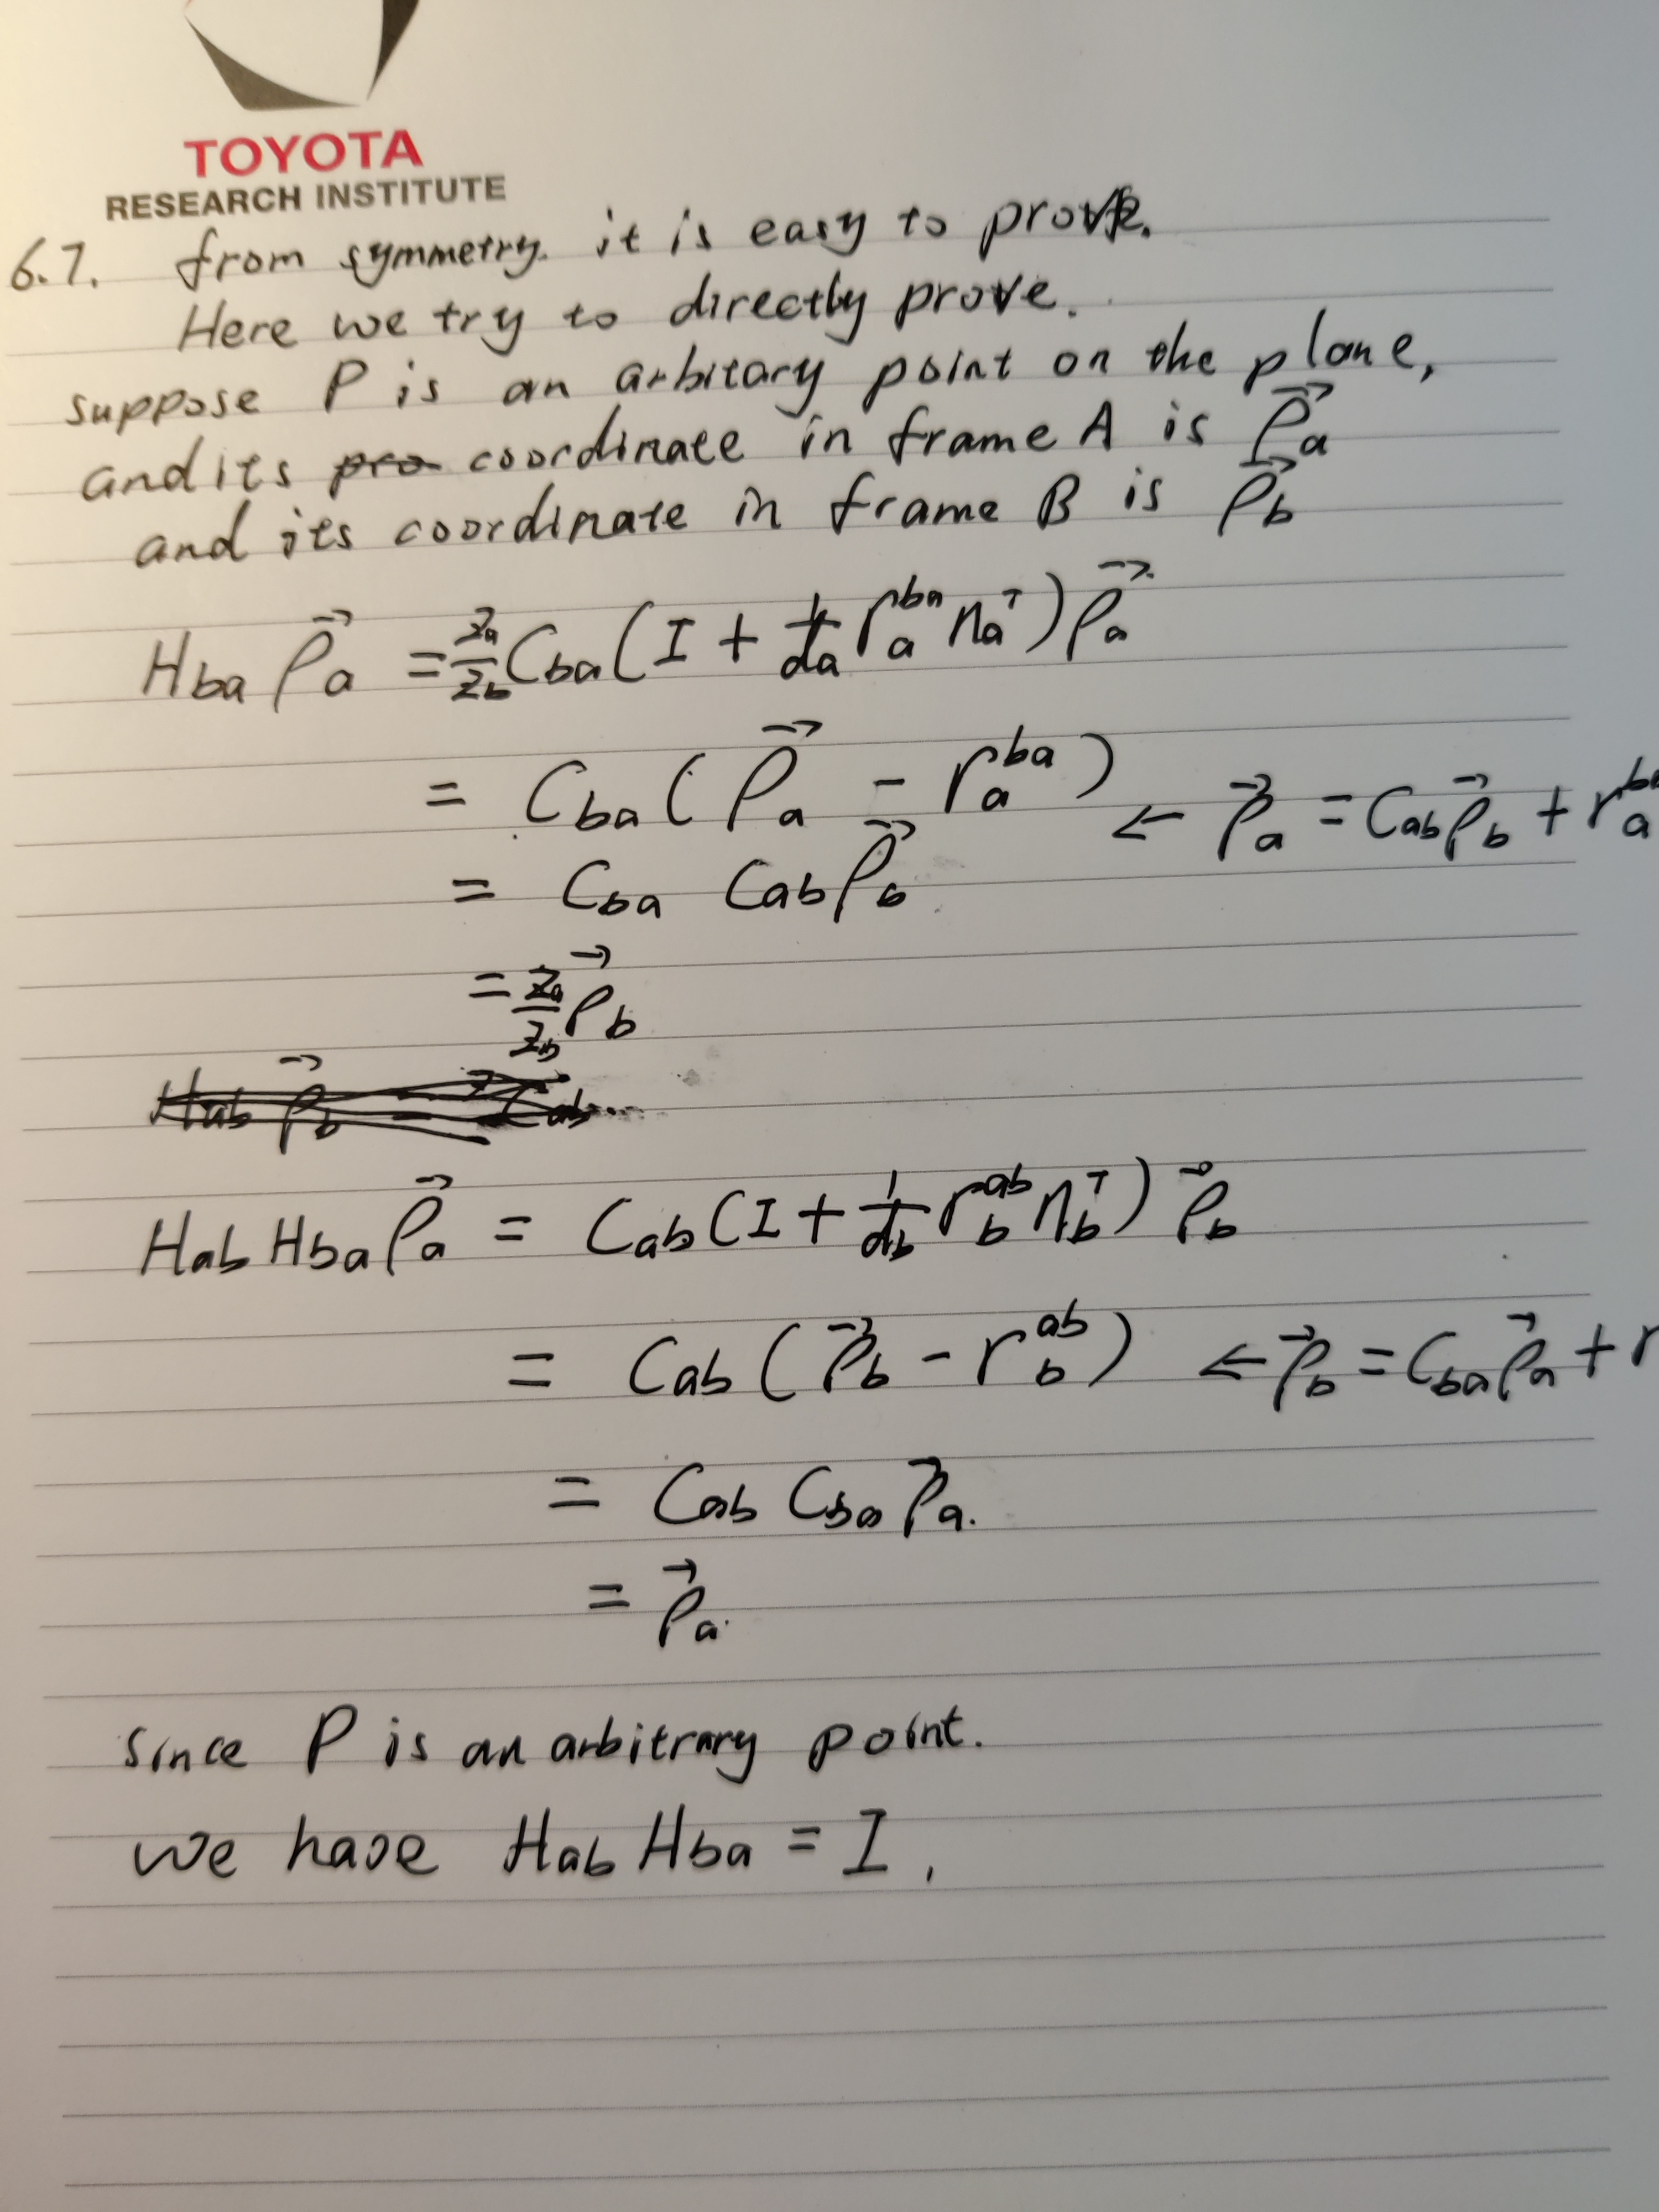 TOYOTA
RESEARCH INSTITUTE
6.7. from symmetry. it is easy to prove.
Here we try to directly prove.
suppose P is an arbitary point on the plane,
and its pro coordinate in frame A is ρ⃗_a
and its coordinate in frame B is ρ⃗_b
H_ba ρ⃗_a = z_a/z_b C_ba ( I + 1/d_a r_a^ba n_a^T ) ρ⃗_a
= C_ba ( ρ⃗_a - r_a^ba ) ← ρ⃗_a = C_ab ρ⃗_b + r_a^ba
= C_ba C_ab ρ⃗_b
= z_a/z_b ρ⃗_b
H_ab ρ⃗_b = C_ab
H_ab H_ba ρ⃗_a = C_ab ( I + 1/d_b r_b^ab n_b^T ) ρ⃗_b
= C_ab ( ρ⃗_b - r_b^ab ) ← ρ⃗_b = C_ba ρ⃗_a + r
= C_ab C_ba ρ⃗_a.
= ρ⃗_a.
since P is an arbitrary point.
we have H_ab H_ba = I,